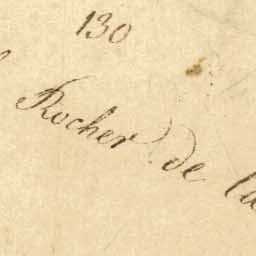 130
Rocher de la